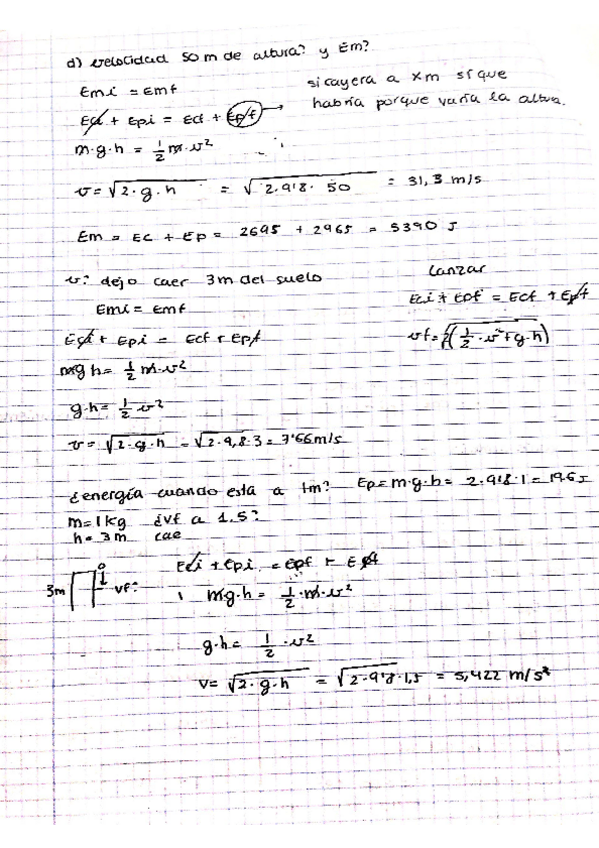 d) velocidad 50 m de altura? y Em?
Emi = Emf
si cayera a x m si que
habría porque varía la altura.
Eci + Epi = Ecf + Epf →
m·g·h = 1/2 m·v²
v = √2·g·h = √2·9'8·50 = 31,3 m/s
Em = Ec + Ep = 2695 + 2965 = 5390 J
v? dejo caer 3m del suelo
Lanzar
Emi = Emf
Eci + Epf = Ecf + Epf
Eci + Epi = Ecf + Epf
vf = √(1/2·v²+g·h)
mg h = 1/2 m·v²
g·h = 1/2 v²
v = √2·g·h = √2·9,8·3 = 7'66 m/s
¿energía cuando está a 1m? Ep = m·g·h = 2·9'8·1 = 19,6 J
m = 1 kg ¿vf a 1,5?
h = 3 m cae
Eci + Epi = Epf + Epf
3m vf?
mg·h = 1/2·m·v²
g·h = 1/2·v²
v = √2·g·h = √2·9'8·1,5 = 5,422 m/s²